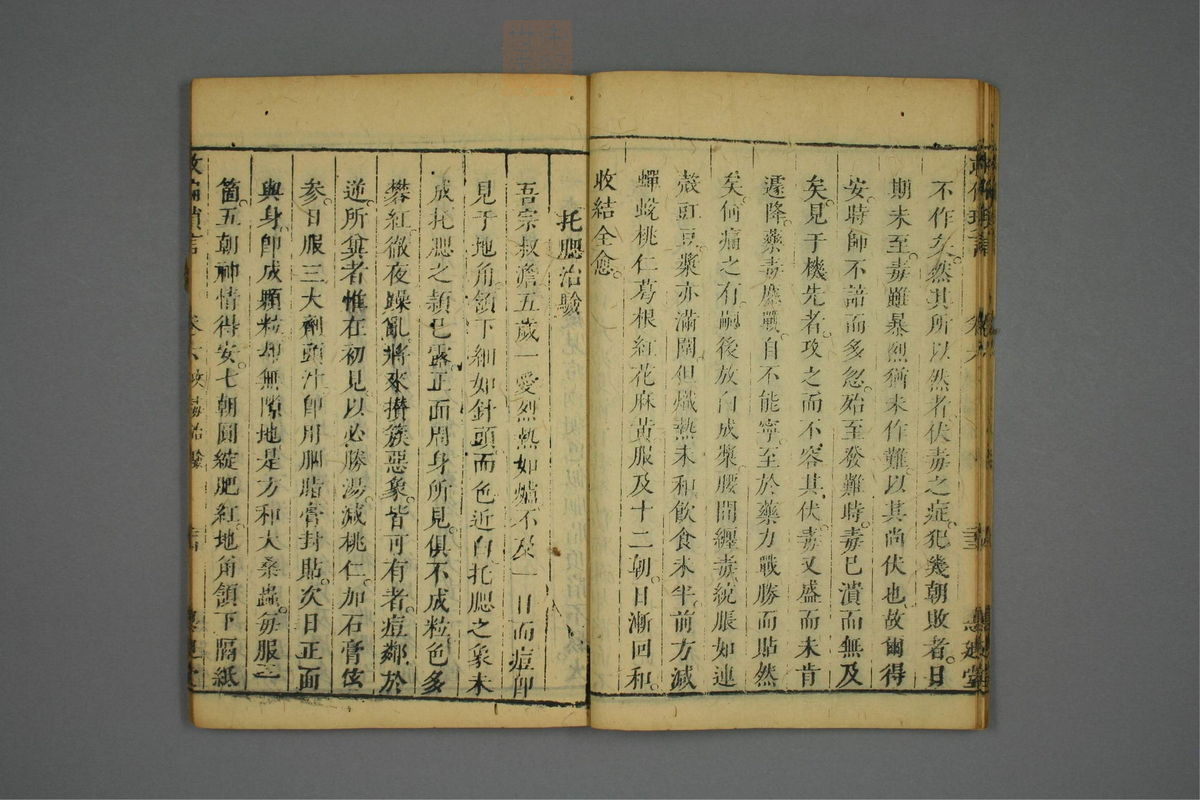 不作矣然其所以然者伏毒之症犯幾朝敗者日
期未至毒雖暴烈猶未作難以其尚伏也故爾得
安時師不諳而多忽殆至發難時毒已潰而無及
矣見于機先者攻之而不容其伏毒又盛而未肯
遽降藥毒鏖戰自不能寧至於藥力戰勝而貼然
矣何痛之有嗣後放白成漿腰間纏毒統脹如連
殼豇豆漿亦滿闊但熾熱未和飲食未半前方減
蟬蛻桃仁葛根紅花麻黃服及十二朝日漸回和
收結全愈
托腮治驗
吾宗叔澹五歲一愛烈熱如爐不及一日而痘即
見于地角頷下細如針頭而色近白托腮之象未
成托腮之顙已露正面周身所見俱不成粒色多
礬紅徹夜躁亂將來攢簇惡象皆可有者痘鄰於
逆所冀者惟在初見以必勝湯減桃仁加石膏
參日服三大劑頭汁即用胭脂膏封貼次日正面
與身即成顆粒却無隙地是方和大桑蟲每服三
箇五朝神情得安七朝圓綻肥紅地角頷下隔紙